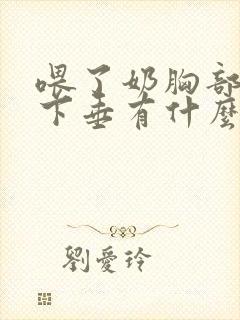 喂了奶胸部
下垂有什麼
劉愛玲